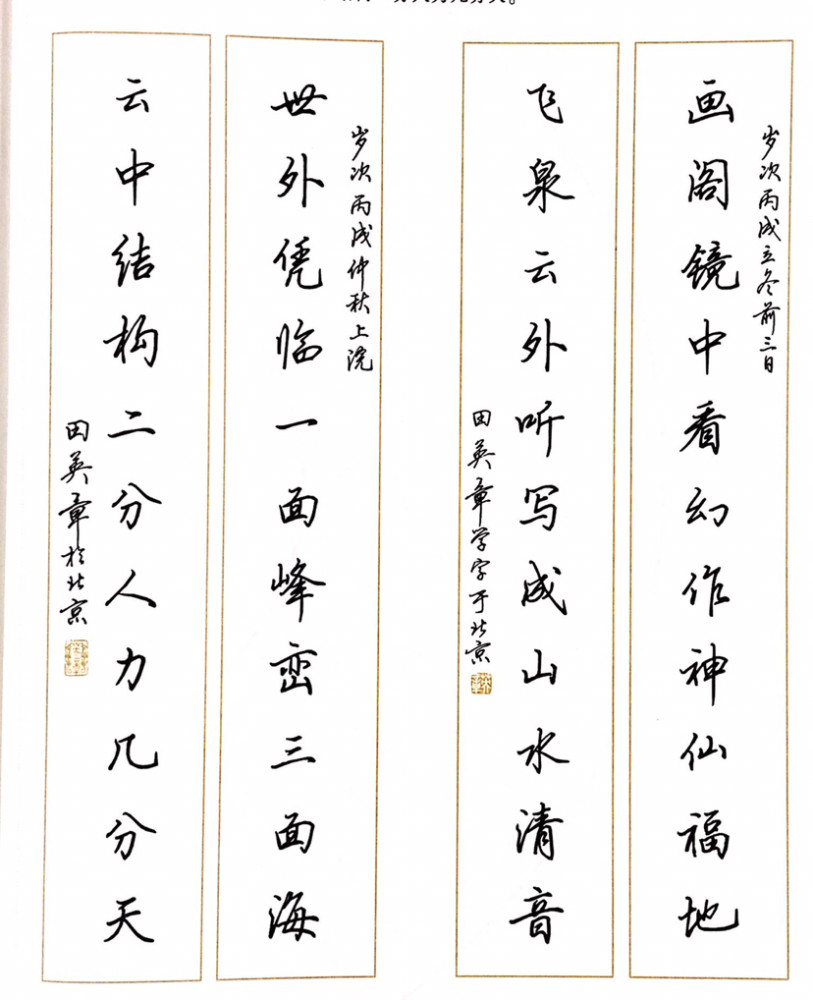 岁次丙戌立冬前三日
画阁镜中看幻作神仙福地
飞泉云外听写成山水清音
田英章学字于北京
岁次丙戌仲秋上浣
世外凭临一面峰峦三面海
云中结构二分人力几分天
田英章于北京